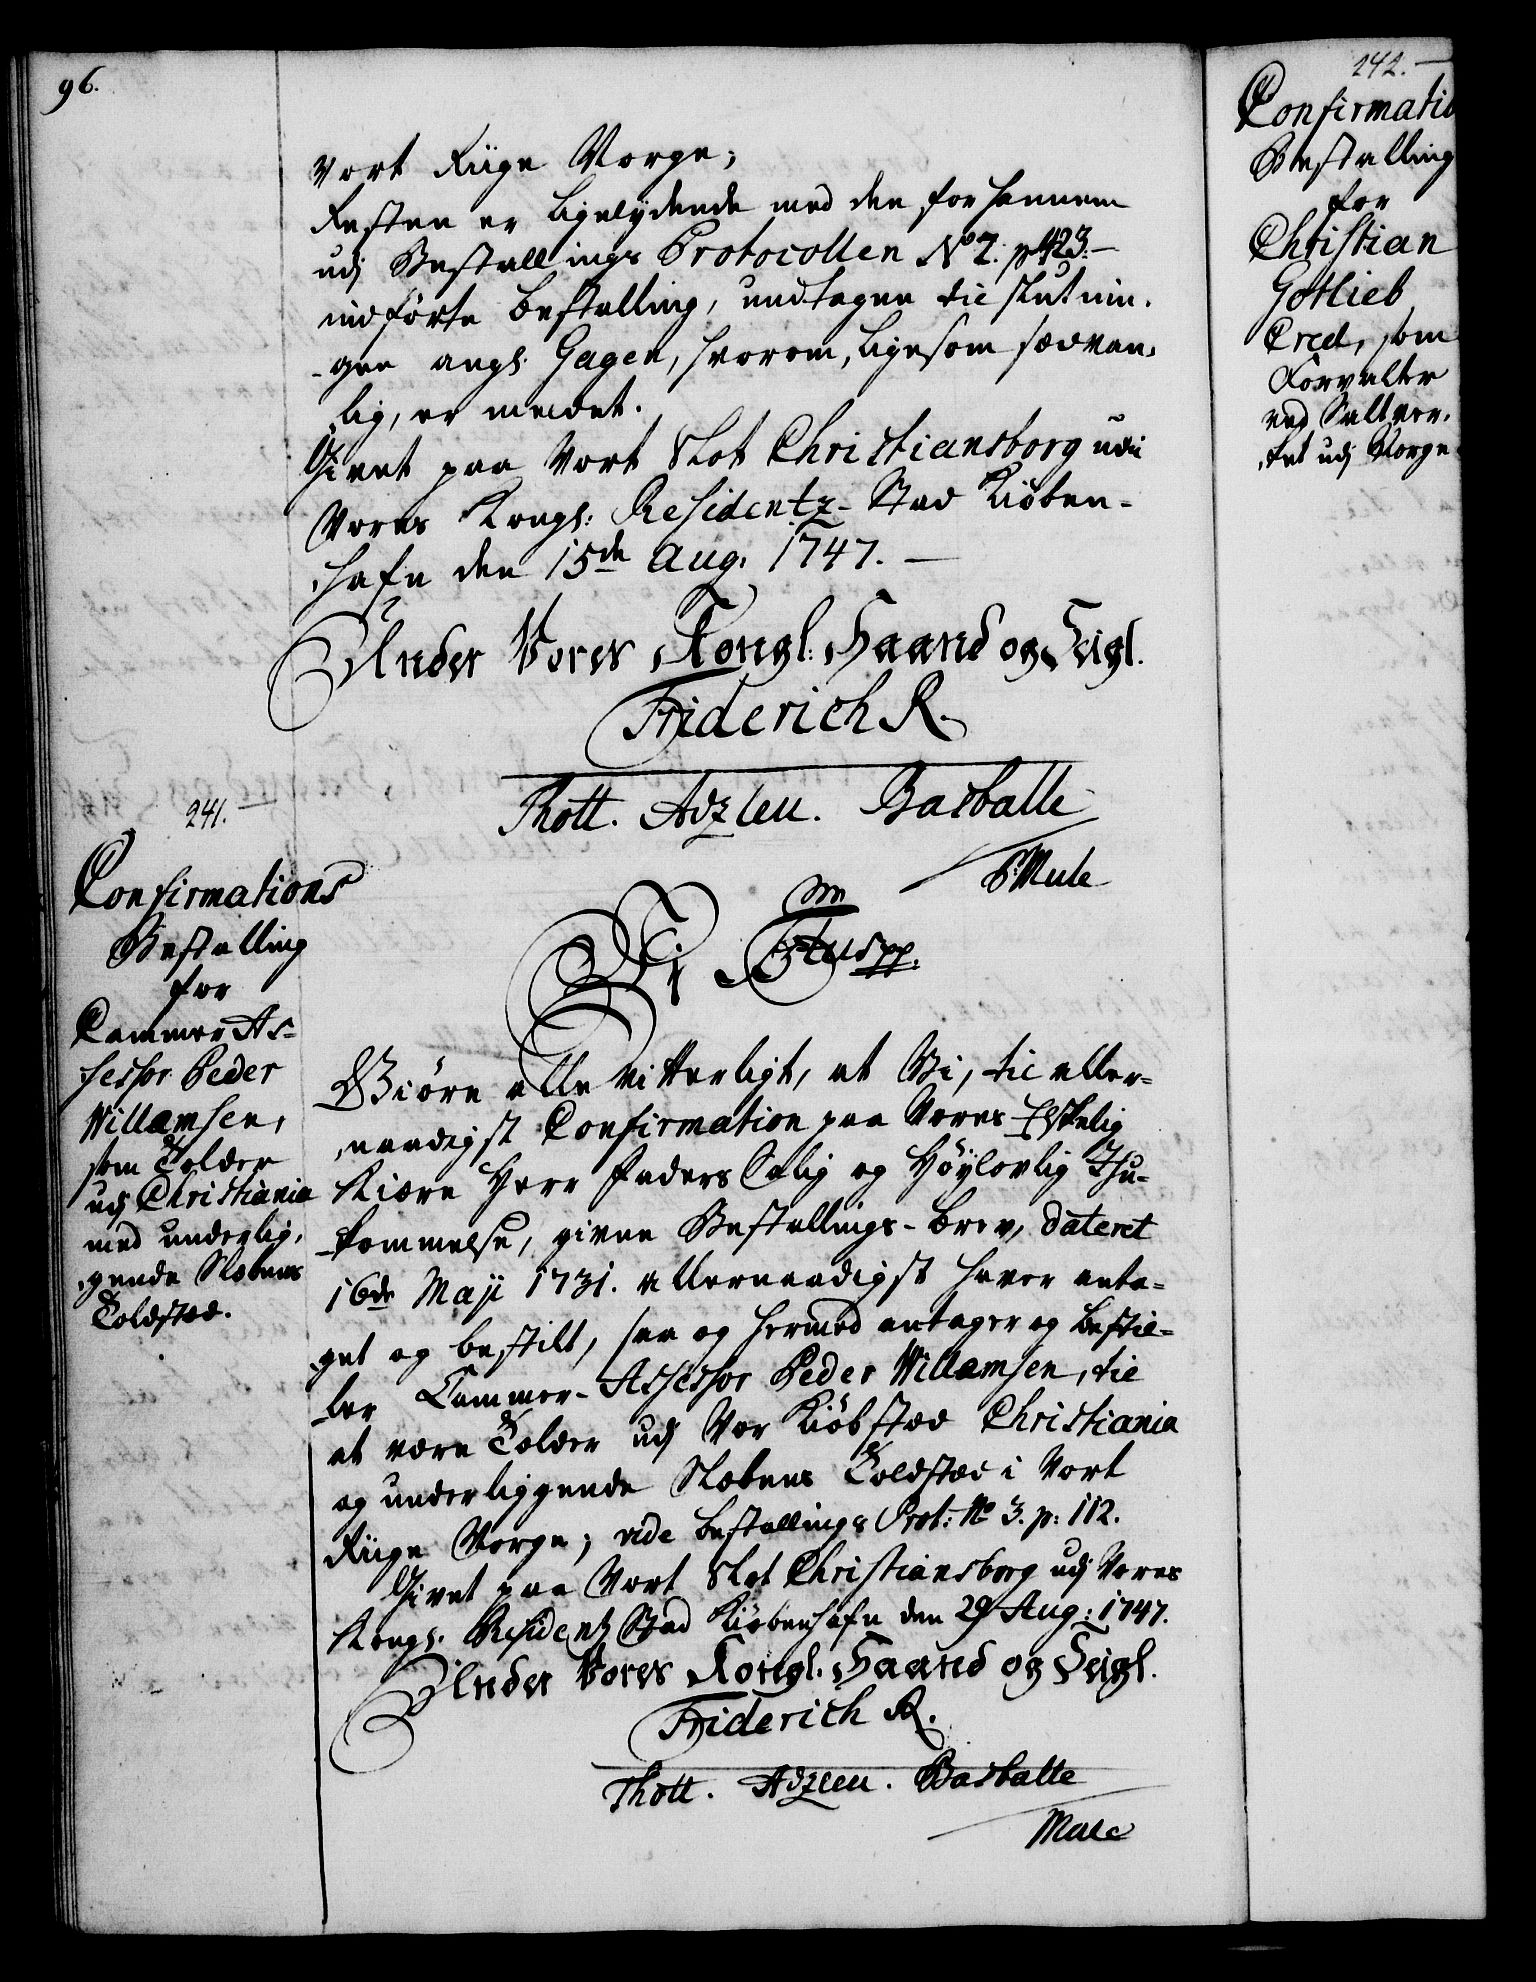 96.
Vort Riige Norge;
Resten er ligelydende med den for hannem
udj Bestallings Protocollen No 2. p 423. -
indførte Bestalling, undtagen til slutnin-
gen angl. Gagen, hvorom, ligesom sædvan-
lig, er meldet.
Givet paa Vort Slot Christiansborg udi
Vores Kongl: Residentz-Stad Kiøben-
hafn den 15de Aug. 1747. -
Under Vores Kongl: Haand og Seigl.
Friderich R.
Thott. Adzleu. Basballe
P Mule
241.
Confirmations
Bestalling
for
Cammer As-
sessor Peder
Willamsen,
som Tolder
udj Christiania
med underlig-
gende Slebens
Toldsted.
Vi Friderich den 5te pp.
Giøre alle vitterligt, at Vi, til aller-
naadigst Confirmation paa Vores Elskelig
Kiære Herr Faders Salig og Høylovlig Ihu-
kommelse, givne Bestallings-Brev, dateret
16de Maji 1731. allernaadigst haver anta-
get og bestilt, saa og hermed antager og bestil-
ler Cammer-Assessor Peder Willamsen, til
at være Tolder udj Vor Kiøbstæd Christiania
og underliggende Slebens Toldsted i Vort
Riige Norge; vide Bestallings Prot: No 3. p: 112.
Givet paa Vort Slot Christiansborg udj Vores
Kongl. Residentz Stad Kiøbenhafn den 29 Aug: 1747.
Under Vores Kongl. Haand og Seigl.
Friderich R.
Thott. Adzleu. Basballe
Mule
242. -
Confirmatio
Bestalling
for
Christian
Gotlieb
Cred, som
Forvalter
ved Saltver-
ket udj Norge